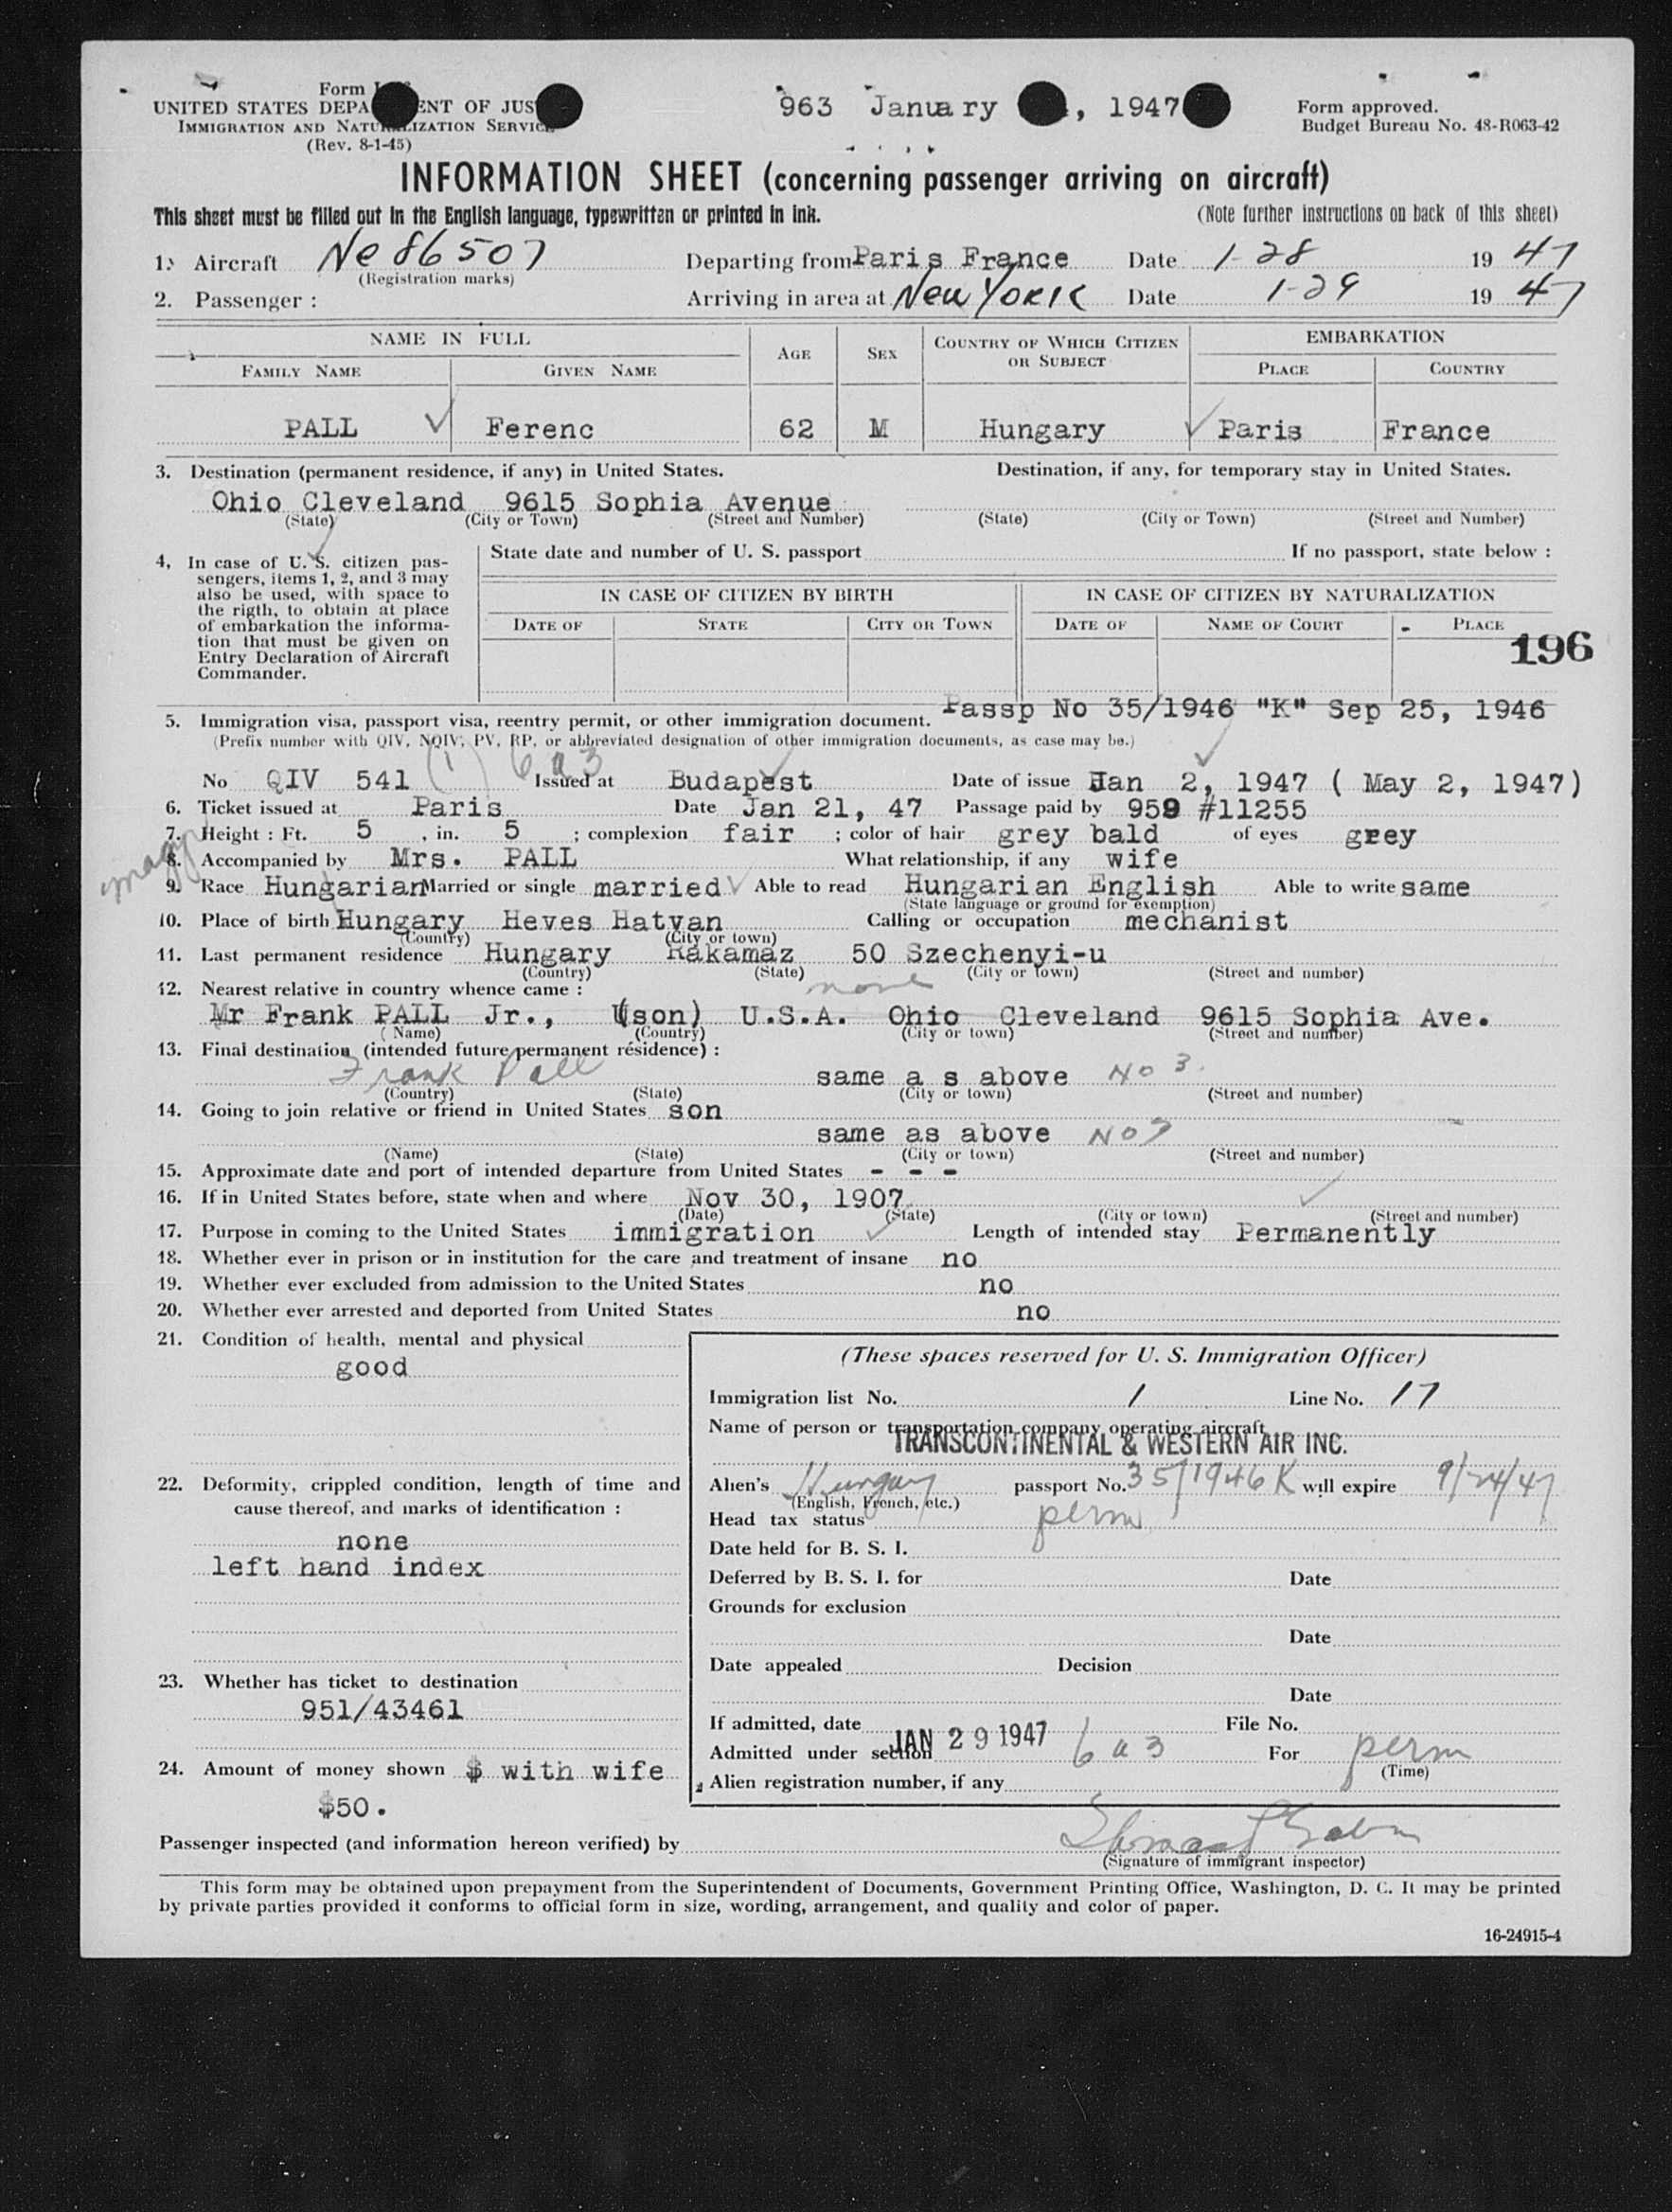 Form
UNITED STATES DEPA ENT OF JUS
IMMIGRATION AND NATURALIZATION SERVICE
(Rev. 8-1-45)
963 January , 1947
Form approved.
Budget Bureau No. 48-R063-42
INFORMATION SHEET (concerning passenger arriving on aircraft)
This sheet must be filled out in the English language, typewritten or printed in ink.
(Note further instructions on back of this sheet)
1. Aircraft Nc 86507 Departing from Paris France Date 1-28 1947
(Registration marks)
2. Passenger : Arriving in area at New YORK Date 1-29 1947
NAME IN FULL AGE SEX COUNTRY OF WHICH CITIZEN OR SUBJECT EMBARKATION
FAMILY NAME GIVEN NAME PLACE COUNTRY
PALL Ferenc 62 M Hungary Paris France
3. Destination (permanent residence, if any) in United States. Destination, if any, for temporary stay in United States.
Ohio Cleveland 9615 Sophia Avenue
(State) (City or Town) (Street and Number) (State) (City or Town) (Street and Number)
4, In case of U. S. citizen pas-
sengers, items 1, 2, and 3 may
also be used, with space to
the rigth, to obtain at place
of embarkation the informa-
tion that must be given on
Entry Declaration of Aircraft
Commander.
State date and number of U. S. passport If no passport, state below :
IN CASE OF CITIZEN BY BIRTH IN CASE OF CITIZEN BY NATURALIZATION
DATE OF STATE CITY OR TOWN DATE OF NAME OF COURT PLACE
196
5. Immigration visa, passport visa, reentry permit, or other immigration document. Passp No 35/1946 "K" Sep 25, 1946
(Prefix number with QIV, NQIV, PV, RP, or abbreviated designation of other immigration documents, as case may be.)
No QIV 541 (1) 6a3 Issued at Budapest Date of issue Jan 2, 1947 ( May 2, 1947)
6. Ticket issued at Paris Date Jan 21, 47 Passage paid by 959 #11255
7. Height : Ft. 5 , in. 5 ; complexion fair ; color of hair grey bald of eyes grey
8. Accompanied by Mrs. PALL What relationship, if any wife
magyar
9. Race Hungarian Married or single married Able to read Hungarian English Able to write same
(State language or ground for exemption)
10. Place of birth Hungary Heves Hatvan Calling or occupation mechanist
(Country) (City or town)
11. Last permanent residence Hungary Rakamaz 50 Szechenyi-u
(Country) (State) (City or town) (Street and number)
12. Nearest relative in country whence came : none
Mr Frank PALL Jr., (son) U.S.A. Ohio Cleveland 9615 Sophia Ave.
(Name) (Country) (City or town) (Street and number)
13. Final destination (intended future permanent résidence) :
Frank Pall same a s above No 3.
(Country) (State) (City or town) (Street and number)
14. Going to join relative or friend in United States son
same as above No
(Name) (State) (City or town) (Street and number)
15. Approximate date and port of intended departure from United States - - -
16. If in United States before, state when and where Nov 30, 1907
(Date) (State) (City or town) (Street and number)
17. Purpose in coming to the United States immigration Length of intended stay Permanently
18. Whether ever in prison or in institution for the care and treatment of insane no
19. Whether ever excluded from admission to the United States no
20. Whether ever arrested and deported from United States no
21. Condition of health, mental and physical
good
22. Deformity, crippled condition, length of time and
cause thereof, and marks of identification :
none
left hand index
23. Whether has ticket to destination
951/43461
24. Amount of money shown $ with wife
$50.
(These spaces reserved for U. S. Immigration Officer)
Immigration list No. 1 Line No. 17
Name of person or transportation company operating aircraft
TRANSCONTINENTAL & WESTERN AIR INC.
Alien's Hungary passport No. 35/1946 K will expire 9/24/47
(English, French, etc.)
Head tax status perm
Date held for B. S. I.
Deferred by B. S. I. for Date
Grounds for exclusion
Date
Date appealed Decision
Date
If admitted, date JAN 29 1947 File No.
Admitted under section 6a3 For perm
(Time)
Alien registration number, if any
Passenger inspected (and information hereon verified) by
(Signature of immigrant inspector)
This form may be obtained upon prepayment from the Superintendent of Documents, Government Printing Office, Washington, D. C. It may be printed
by private parties provided it conforms to official form in size, wording, arrangement, and quality and color of paper.
16-24915-4